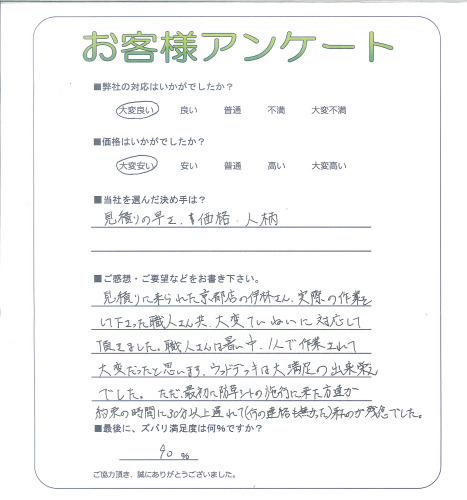 お客様アンケート
■弊社の対応はいかがでしたか?
大変良い 良い 普通 不満 大変不満
■価格はいかがでしたか?
大変安い 安い 普通 高い 大変高い
■当社を選んだ決め手は?
見積りの早さ、価格、人柄
■ご感想・ご要望などをお書き下さい。
見積りに来られた京都店の伊林さん、実際の作業を
して下さった職人さん共、大変ていねいに対応して
頂きました。職人さんは暑い中、1人で作業されて
大変だったと思います。ウッドデッキは大満足の出来栄え
でした。ただ、最初に防草シートの施行に来た方達が
約束の時間に30分以上遅れて(何の連絡も無かった)来たのが残念でした。
■最後に、ズバリ満足度は何%ですか?
90 %
ご協力頂き、誠にありがとうございました。